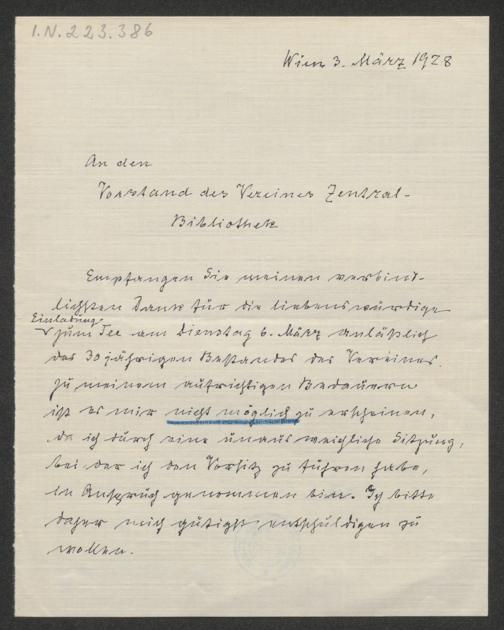 I.N. 223.386
Wien 3. März 1928
An den
Vorstand des Vereines Zentral-
Bibliothek
Empfangen Sie meinen verbind-
lichsten Dank für die liebenswürdige
Einladung
zum Tee am Dienstag 6. März anläßlich
des 30jährigen Bestandes des Vereines.
Zu meinem aufrichtigen Bedauern
ist es mir nicht möglich zu erscheinen,
da ich durch eine unausweichliche Sitzung,
bei der ich den Vorsitz zu führen habe,
in Anspruch genommen bin. Ich bitte
daher mich gütigst entschuldigen zu
wollen.